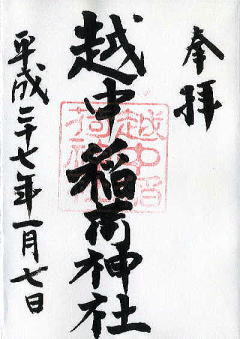 奉拝
越中稲荷神社
越中稲荷神社
平成二十七年一月七日